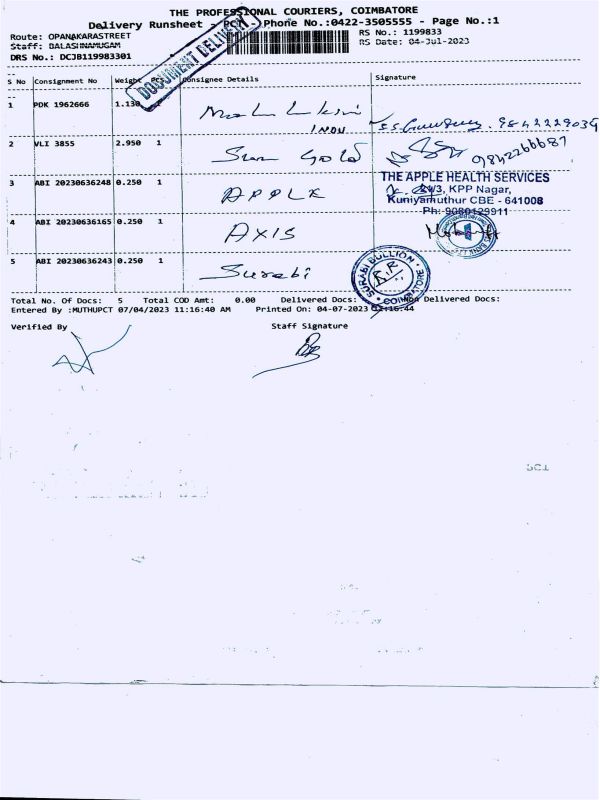 THE PROFESSIONAL COURIERS, COIMBATORE
Delivery Runsheet - PCR - Phone No.:0422-3505555 - Page No.:1
Route: OPANAKARASTREET
RS No.: 1199833
Staff: BALASHNAMUGAM
RS Date: 04-Jul-2023
DRS No.: DCJB119983301
DOCUMENT DELIVERY
S No Consignment No Weight Pcs Consignee Details Signature
1 PDK 1962666 1.130 1
2 VLI 3855 2.950 1 9842266687
3 ABI 20230636248 0.250 1 APPLE
THE APPLE HEALTH SERVICES
KPP Nagar,
Kuniyamuthur CBE - 641008
Ph: 9080129911
4 ABI 20230636165 0.250 1 AXIS
5 ABI 20230636243 0.250 1 Surabi
SURABI BULLION
COIMBATORE
Total No. Of Docs: 5 Total COD Amt: 0.00 Delivered Docs: Non Delivered Docs:
Entered By :MUTHUPCT 07/04/2023 11:16:40 AM Printed On: 04-07-2023 :16:44
Verified By Staff Signature